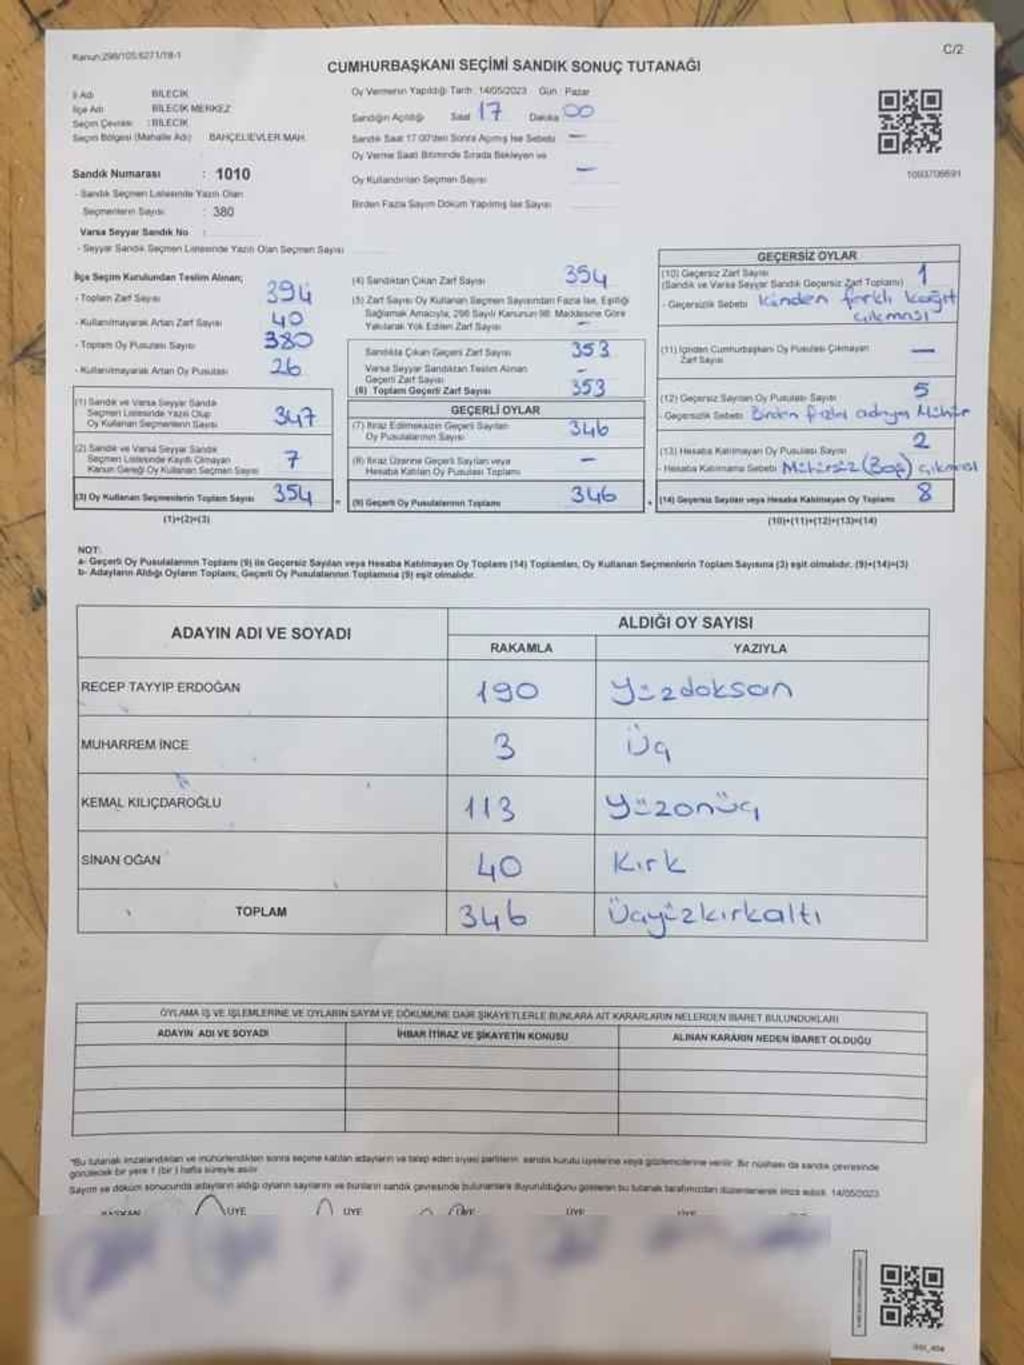 Kanun:298/105:6271/18-1
C/2
CUMHURBAŞKANI SEÇİMİ SANDIK SONUÇ TUTANAĞI
İl Adı BİLECİK
İlçe Adı BİLECİK MERKEZ
Seçim Çevresi : BİLECİK
Seçim Bölgesi (Mahalle Adı) BAHÇELİEVLER MAH.
Sandık Numarası : 1010
- Sandık Seçmen Listesinde Yazılı Olan
Seçmenlerin Sayısı : 380
Varsa Seyyar Sandık No :
- Seyyar Sandık Seçmen Listesinde Yazılı Olan Seçmen Sayısı
Oy Vermenin Yapıldığı Tarih : 14/05/2023 Gün : Pazar
Sandığın Açıldığı Saat 17 Dakika 00
Sandık Saat 17.00'den Sonra Açılmış İse Sebebi —
Oy Verme Saati Bitiminde Sırada Bekleyen ve
Oy Kullandırılan Seçmen Sayısı —
Birden Fazla Sayım Döküm Yapılmış İse Sayısı
1093706691
İlçe Seçim Kurulundan Teslim Alınan;
- Toplam Zarf Sayısı 394
- Kullanılmayarak Artan Zarf Sayısı 40
- Toplam Oy Pusulası Sayısı 380
- Kullanılmayarak Artan Oy Pusulası 26
(1) Sandık ve Varsa Seyyar Sandık
Seçmen Listesinde Yazılı Olup
Oy Kullanan Seçmenlerin Sayısı 347
(2) Sandık ve Varsa Seyyar Sandık
Seçmen Listesinde Kaydı Olmayan
Kanun Gereği Oy Kullanan Seçmen Sayısı 7
(3) Oy Kullanan Seçmenlerin Toplam Sayısı 354
(1)+(2)=(3)
(4) Sandıktan Çıkan Zarf Sayısı 354
(5) Zarf Sayısı Oy Kullanan Seçmen Sayısından Fazla İse, Eşitliği
Sağlamak Amacıyla, 298 Sayılı Kanunun 98. Maddesine Göre
Yakılarak Yok Edilen Zarf Sayısı —
Sandıkta Çıkan Geçerli Zarf Sayısı 353
Varsa Seyyar Sandıktan Teslim Alınan
Geçerli Zarf Sayısı -
(6) Toplam Geçerli Zarf Sayısı 353
GEÇERLİ OYLAR
(7) İtiraz Edilmeksizin Geçerli Sayılan
Oy Pusulalarının Sayısı 346
(8) İtiraz Üzerine Geçerli Sayılan veya
Hesaba Katılan Oy Pusulası Toplamı —
(9) Geçerli Oy Pusulalarının Toplamı 346
GEÇERSİZ OYLAR
(10) Geçersiz Zarf Sayısı 1
(Sandık ve Varsa Seyyar Sandık Geçersiz Zarf Toplamı)
- Geçersizlik Sebebi İçinden farklı kağıt
çıkması
(11) İçinden Cumhurbaşkanı Oy Pusulası Çıkmayan
Zarf Sayısı —
(12) Geçersiz Sayılan Oy Pusulası Sayısı 5
- Geçersizlik Sebebi Birden fazla adaya Mühür
(13) Hesaba Katılmayan Oy Pusulası Sayısı 2
- Hesaba Katılmama Sebebi Mühürsüz (Boş) çıkması
(14) Geçersiz Sayılan veya Hesaba Katılmayan Oy Toplamı 8
(10)+(11)+(12)+(13)=(14)
NOT:
a- Geçerli Oy Pusulalarının Toplamı (9) ile Geçersiz Sayılan veya Hesaba Katılmayan Oy Toplamı (14) Toplamları, Oy Kullanan Seçmenlerin Toplam Sayısına (3) eşit olmalıdır. (9)+(14)=(3)
b- Adayların Aldığı Oyların Toplamı, Geçerli Oy Pusulalarının Toplamına (9) eşit olmalıdır.
ADAYIN ADI VE SOYADI ALDIĞI OY SAYISI
RAKAMLA YAZIYLA
RECEP TAYYİP ERDOĞAN 190 yüzdoksan
MUHARREM İNCE 3 Üç
KEMAL KILIÇDAROĞLU 113 yüzonüç
SİNAN OĞAN 40 Kırk
TOPLAM 346 Üçyüzkırkaltı
OYLAMA İŞ VE İŞLEMLERİNE VE OYLARIN SAYIM VE DÖKÜMÜNE DAİR ŞİKAYETLERLE BUNLARA AİT KARARLARIN NELERDEN İBARET BULUNDUKLARI
ADAYIN ADI VE SOYADI İHBAR İTİRAZ VE ŞİKAYETİN KONUSU ALINAN KARARIN NEDEN İBARET OLDUĞU
"Bu tutanak imzalandıktan ve mühürlendikten sonra seçime katılan adayların ve talep eden siyasi partilerin sandık kurulu üyelerine veya gözlemcilerine verilir. Bir nüshası da sandık çevresinde
görülecek bir yere 1 (bir) hafta süreyle asılır.
Sayım ve döküm sonucunda adayların aldığı oyların sayılarını ve bunların sandık çevresinde bulunanlara duyurulduğunu gösteren bu tutanak tarafımızdan düzenlenerek imza edildi. 14/05/2023
BAŞKAN ÜYE ÜYE ÜYE ÜYE ÜYE